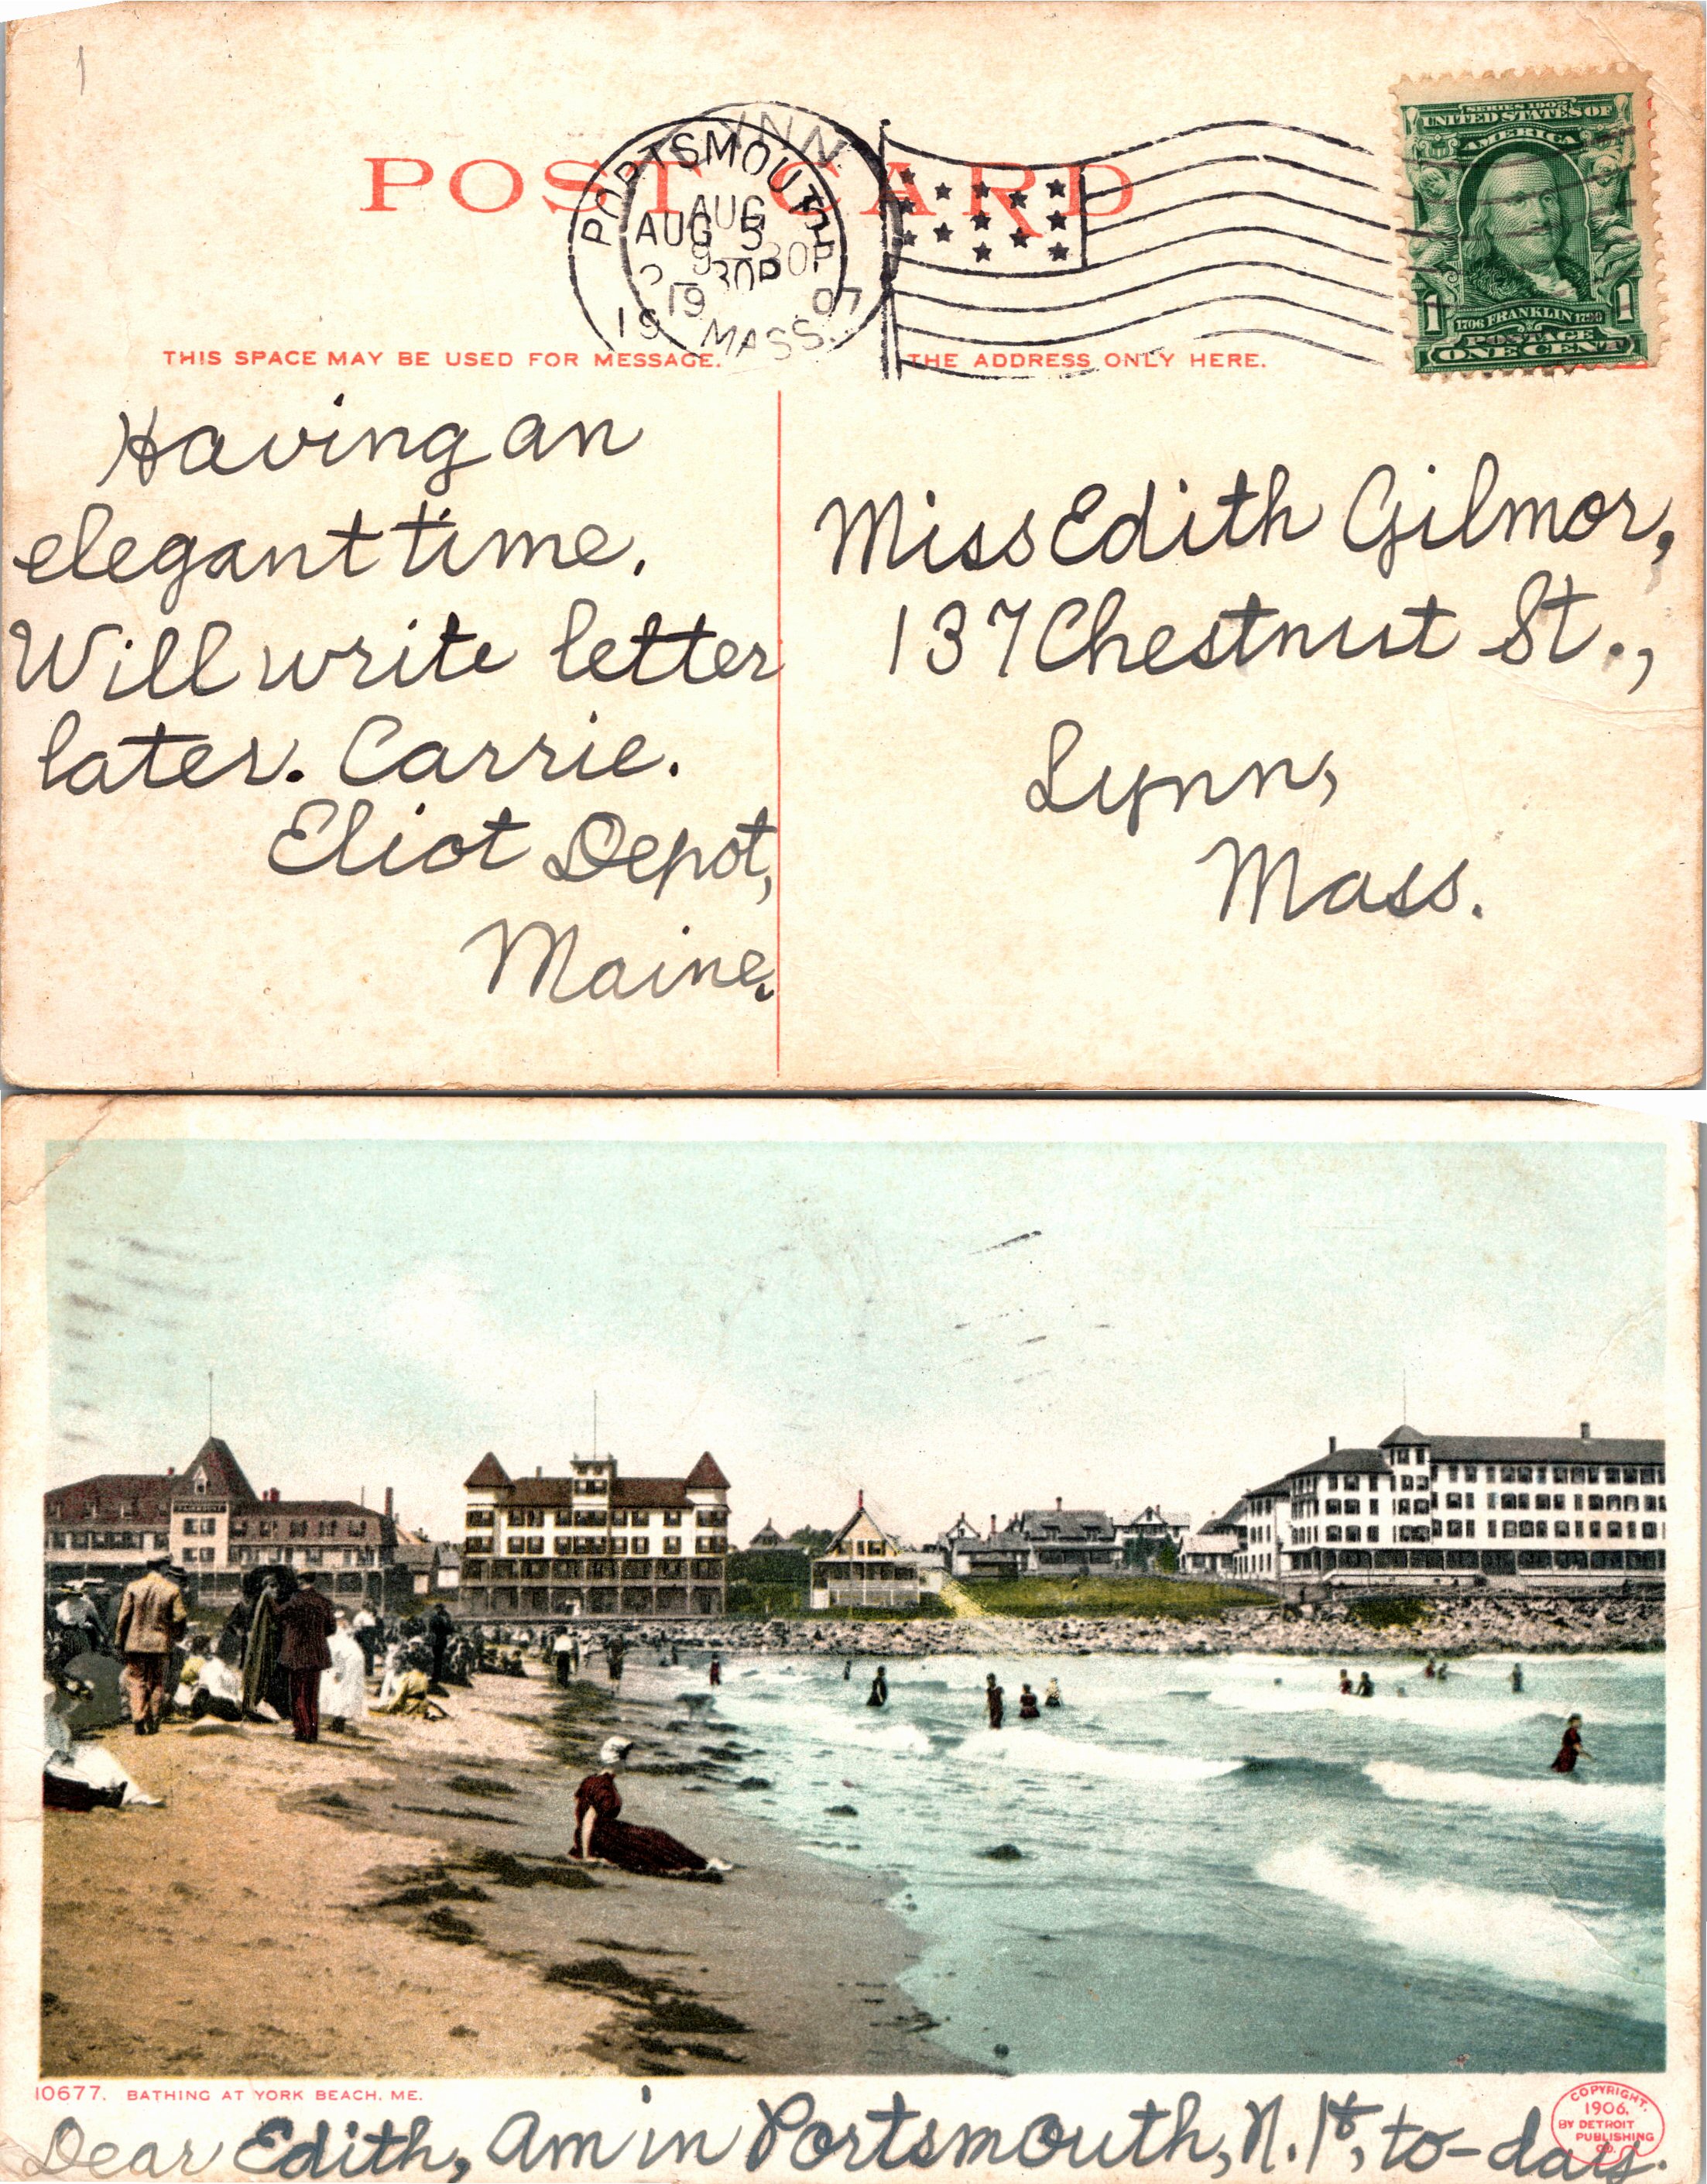 POST CARD
PORTSMOUTH
LYNN
AUG 5
AUG
9-30P
30P
19
19 07
MASS.
SERIES 1902
UNITED STATES OF
AMERICA
1 1
1706 FRANKLIN 1790
POSTAGE
ONE CENT
THIS SPACE MAY BE USED FOR MESSAGE.
THE ADDRESS ONLY HERE.
Having an
elegant time.
Will write letter
later. Carrie.
Eliot Depot,
Maine.
Miss Edith Gilmor,
137 Chestnut St.,
Lynn,
Mass.
10677. BATHING AT YORK BEACH, ME.
COPYRIGHT,
1906,
BY DETROIT
PUBLISHING
CO.
Dear Edith, Am in Portsmouth, N.H., to-day.